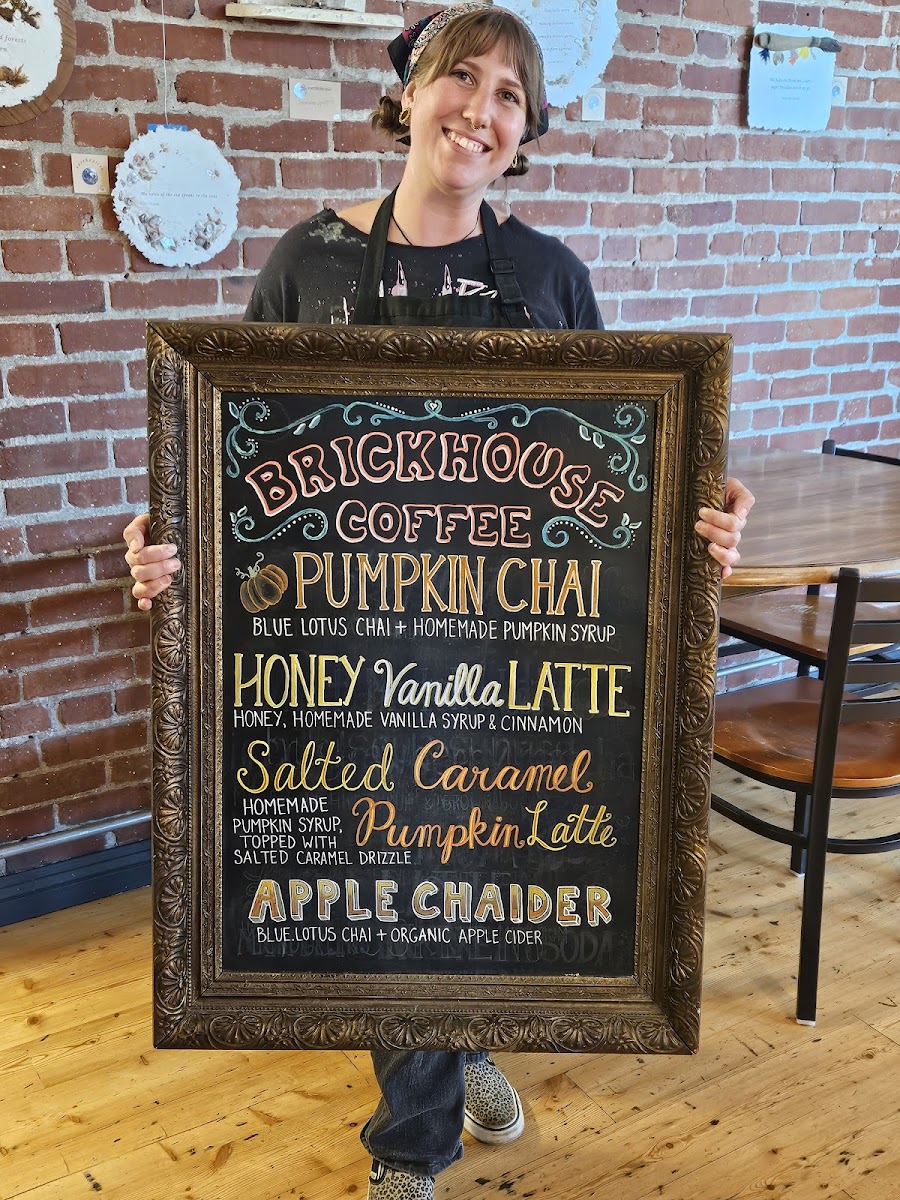 BRICKHOUSE
COFFEE
PUMPKIN CHAI
BLUE LOTUS CHAI + HOMEMADE PUMPKIN SYRUP
HONEY Vanilla LATTE
HONEY, HOMEMADE VANILLA SYRUP & CINNAMON
Salted Caramel
Pumpkin Latte
HOMEMADE
PUMPKIN SYRUP,
TOPPED WITH
SALTED CARAMEL DRIZZLE
APPLE CHAIDER
BLUE LOTUS CHAI + ORGANIC APPLE CIDER
SODA